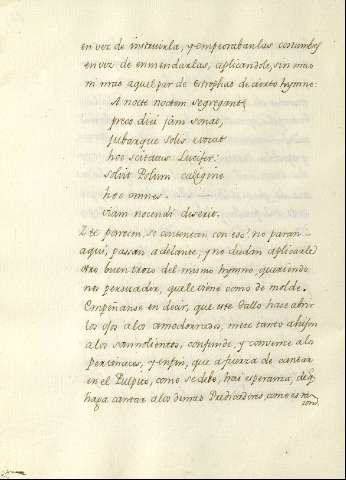 en vez de instruirla, y empeoraban las costumbres
en vez de enmendarlas, aplicandole, sin mas
ni mas aquel par de estrophas de cierto hymno:
A nocte noctem segregans,
preco diei jam sonat,
jubarque solis evocat
hoc excitatus Lucifer.
solvit Polum caligine
hoc omnes
viam nocendi deserit.
Y te parecen, se contentan con eso? no paran
aqui, passan adelante, y no dudan aplicarle
otro buen trozo del mismo hymno, queriendo-
nos persuadir, que le viene como de molde.
Empeñanse en decir, que este Gallo hace abrir
los ojos a los amodorrados, mete tanto
a los soñolientos, confunde, y convence a los
pertinaces; y en fin, que a fuerza de cantar
en el Pulpito, como se debe, hai esperanza, de q̃
haga cantar a los demas Predicadores, como es ra-
zon.